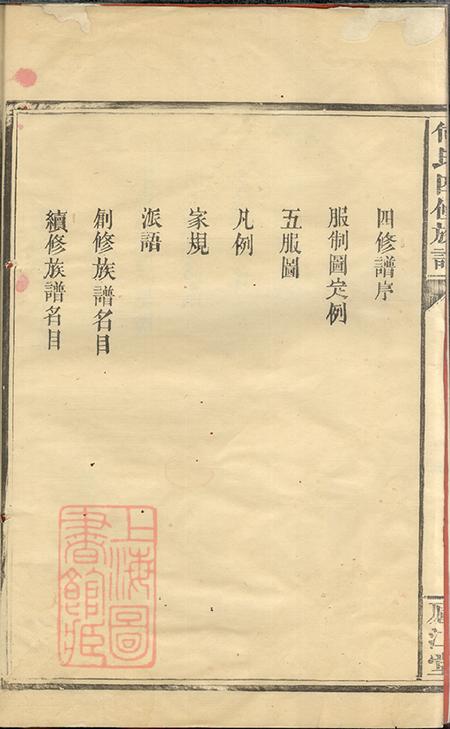 何氏四修族譜
四修譜序
服制圖定例
五服圖
凡例
家規
派語
創修族譜名目
續修族譜名目
廬江堂
上海圖
書館藏